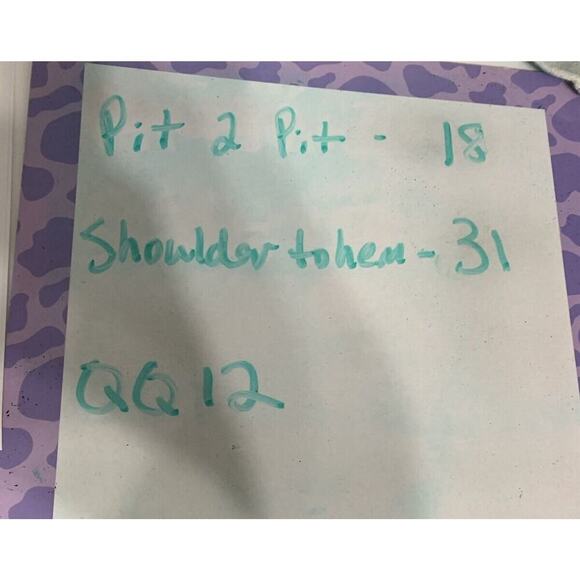 Pit 2 Pit - 18
Shoulder to hem - 31
QQ12